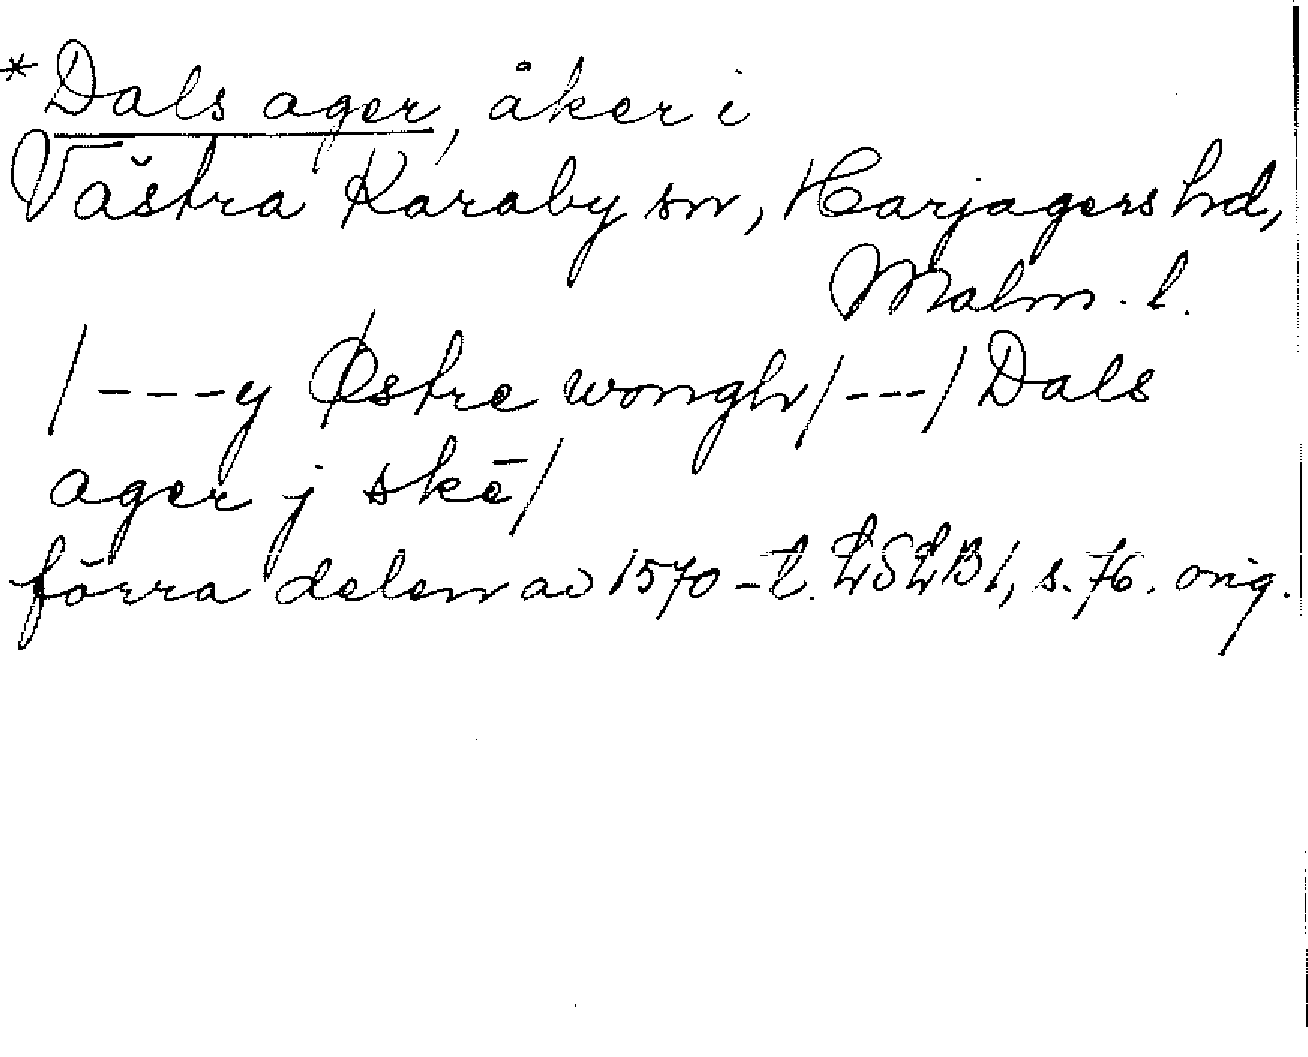 *Dals ager, åker i
Västra Karaby sn, Harjagers hd,
Malm. l.
/---y Østre wongh/---/Dals
ager j skē/
förra delen av 1570-t. LSLB 1, s. 76. orig.